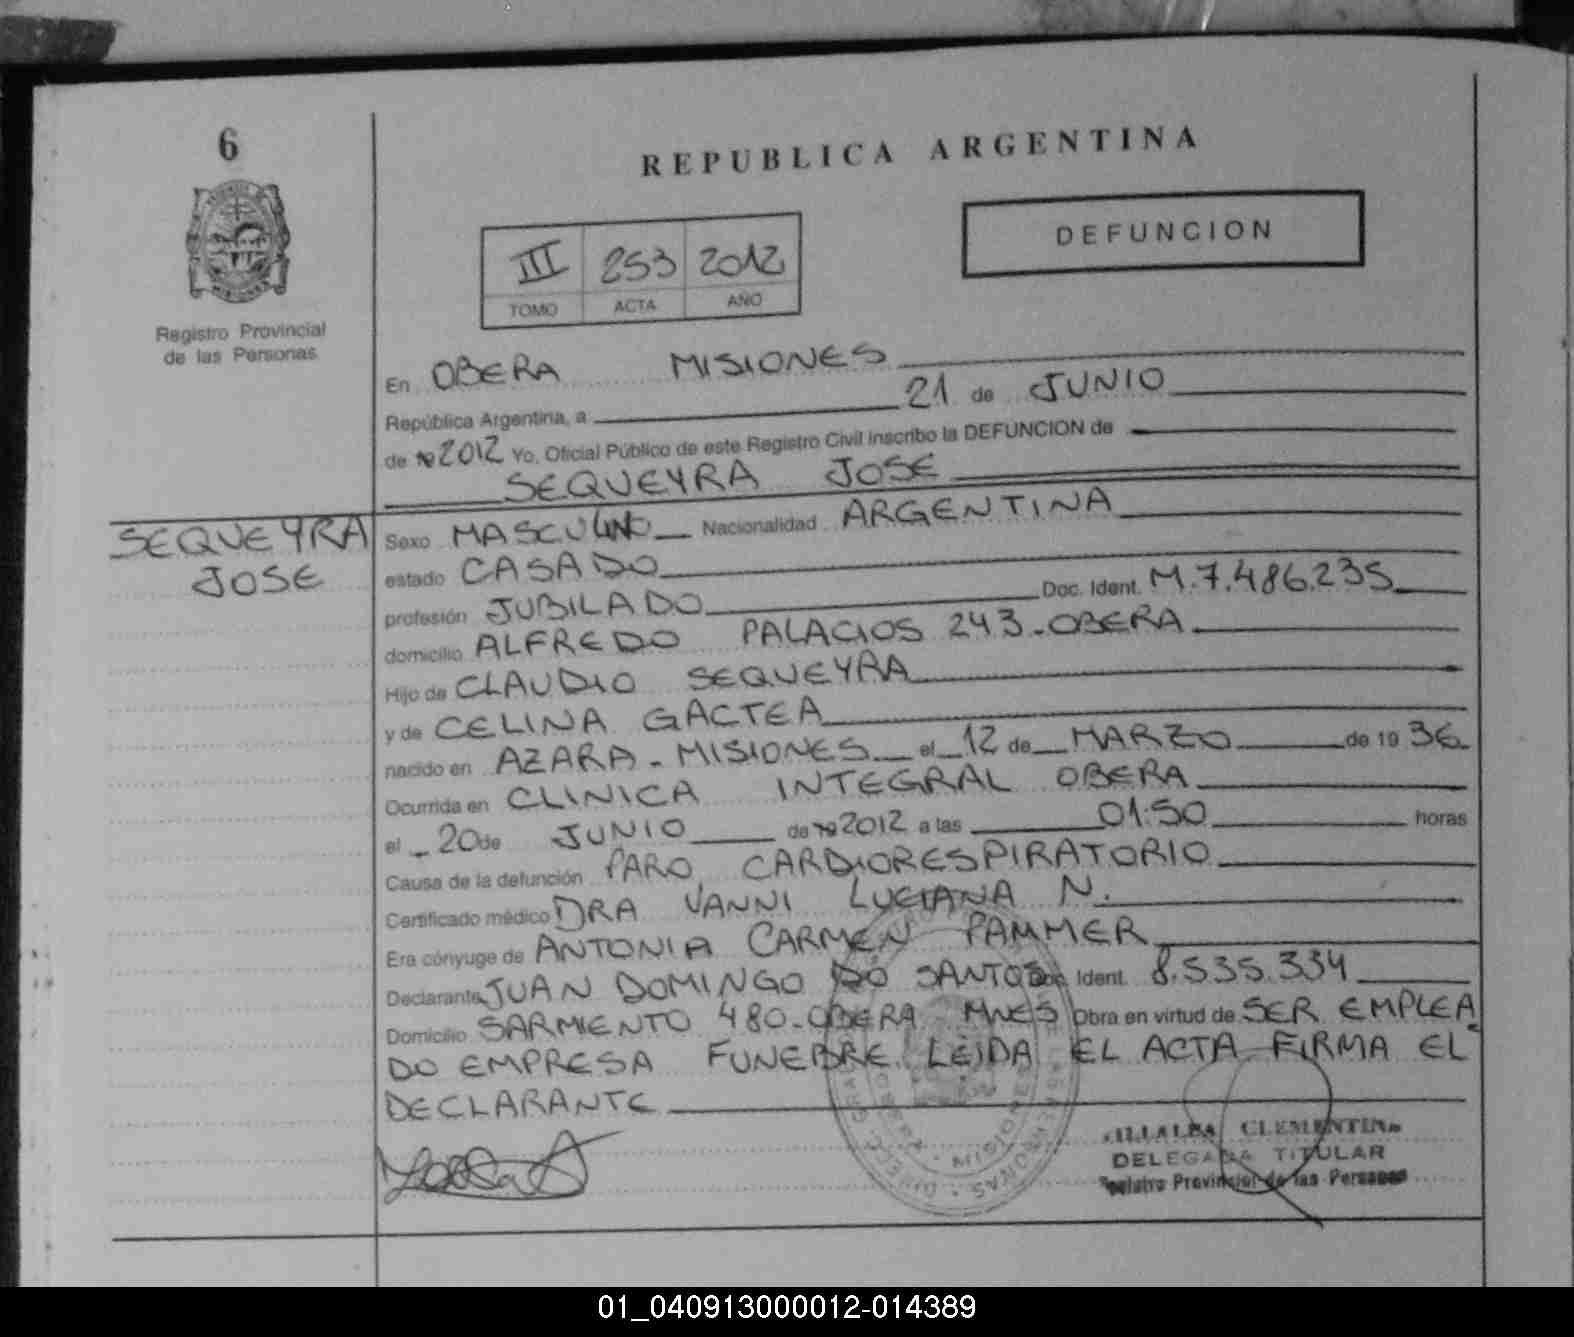 6
REPUBLICA ARGENTINA
DEFUNCION
III 253 2012
TOMO ACTA AÑO
Registro Provincial
de las Personas
En OBERA MISIONES
República Argentina, a 21 de JUNIO
de 19 2012 Yo, Oficial Público de este Registro Civil inscribo la DEFUNCION de
SEQUEYRA JOSE
SEQUEYRA
JOSE
Sexo MASCULINO Nacionalidad ARGENTINA
estado CASADO
profesión JUBILADO Doc. Ident. M.7.486.235
domicilio ALFREDO PALACIOS 243-OBERA
Hijo de CLAUDIO SEQUEYRA
y de CELINA GACTEA
nacido en AZARA - MISIONES el 12 de MARZO de 19 36
Ocurrida en CLINICA INTEGRAL OBERA
el 20 de JUNIO de 19 2012 a las 01:50 horas
Causa de la defunción PARO CARDIORESPIRATORIO
Certificado médico DRA VANNI LUCIANA N.
Era cónyuge de ANTONIA CARMEN PAMMER
Declarante JUAN DOMINGO DO SANTOS Doc. Ident. 8.535.334
Domicilio SARMIENTO 480-OBERA MNES Obra en virtud de SER EMPLEA
DO EMPRESA FUNEBRE. LEIDA EL ACTA FIRMA EL
DECLARANTE
VILLALBA CLEMENTINA
DELEGADA TITULAR
Registro Provincial de las Personas
01_040913000012-014389